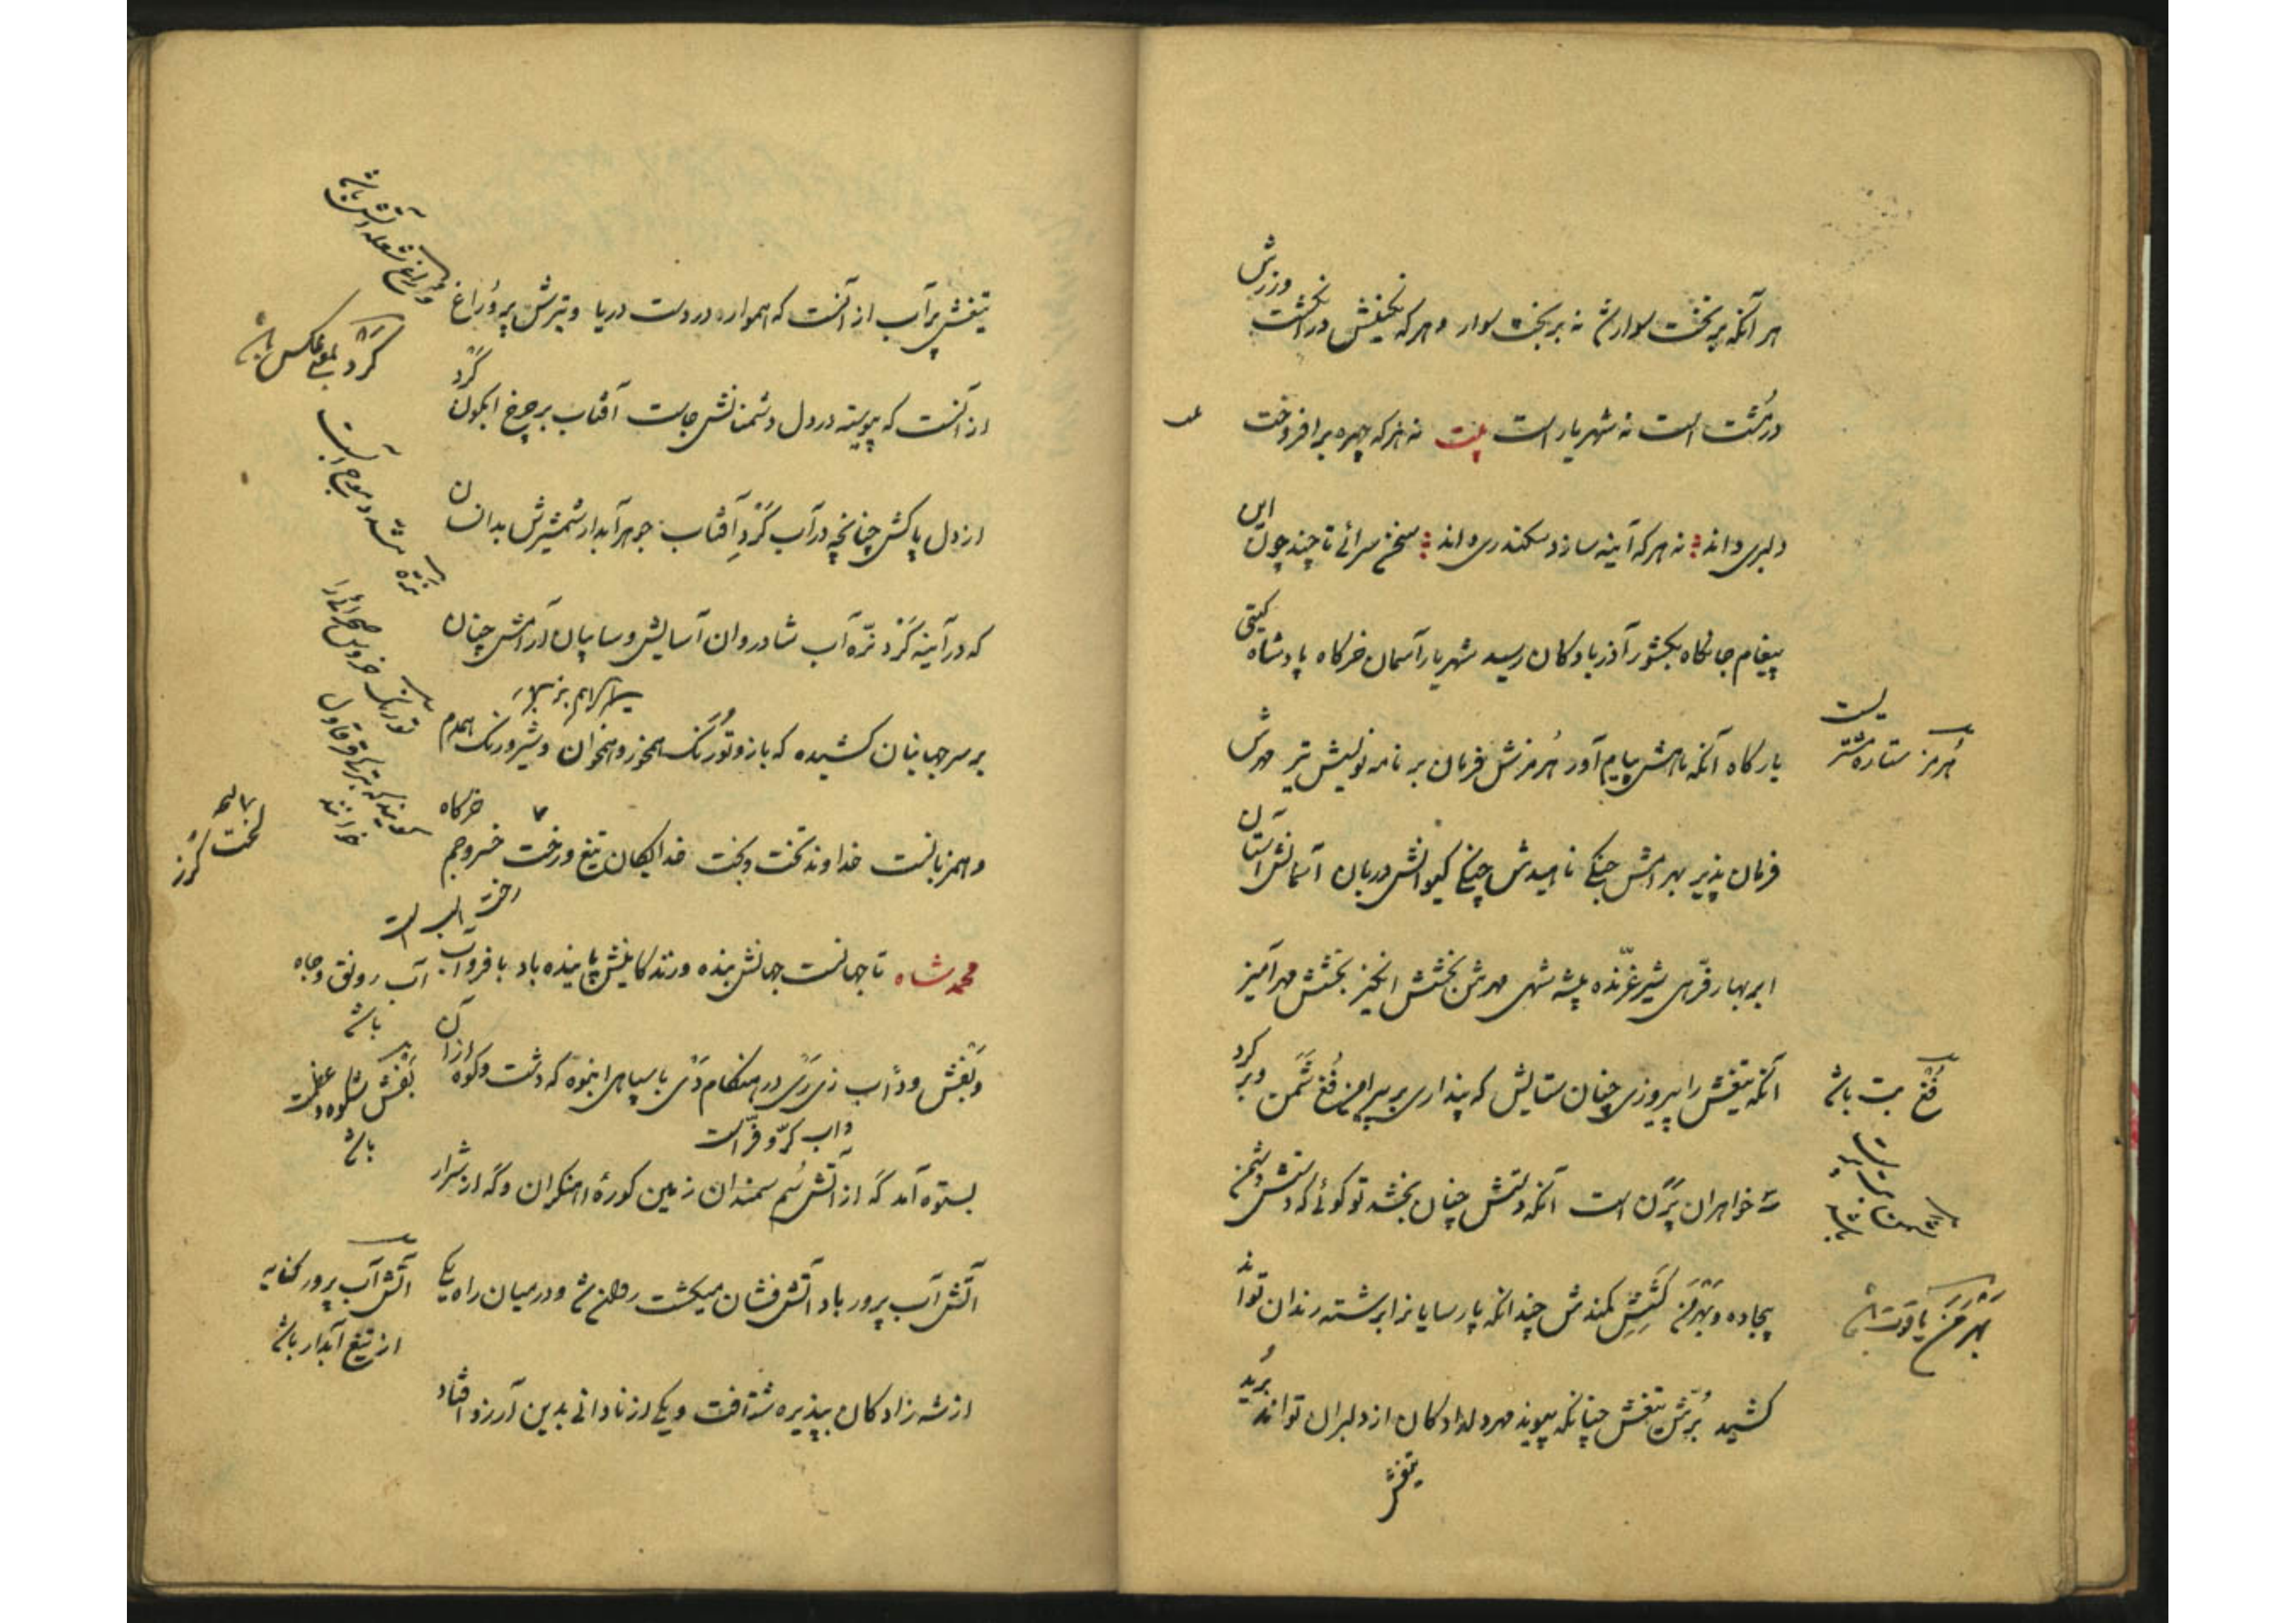 هر آنکه بر تخت سوارش نه بر بخت سوار و هرکه نگینش در انگشت ورزش
در مشت است نه شهریار است بیت نه هر که چهره برافروخت
دلبری داند نه هر که آینه سازد سکندری داند سخن سرائے تا چند چون این
پیغام جانکاه بکشور آذربادکان رسید شهریار آسمان خرگاه پادشاه کیتی
بارگاه آنکه ماهش پیام آور هُرمزش فرمان بر نامه نویسش تیر مهرش
فرمان پذیر بهرامش جنگی ناهیدش چنگی کیوانش دربان آسمانش آستان
ابر بهار فرّهی شیر غرّنده بیشه شهی مهرش بخشش انگیز بخشش مهرآمیز
آنکه تیغش را پیروزی چنان ستایش که پنداری بر پیرامن فُغ شَمَن و بر گرد
سه خواهران پَرَن است آنکه دستش چنان بخشد تو گوئے که دستش دشمن
بیجاده و بَهْرَمَن کَشِشِ کمندش چندانکه پارسایانرا برشته رندان تواند
کشید بُرّشِ تیغش چنانکه پیوند مهر دلدادکان از دلبران تواند بُرید
تیغش
هُرمز ستاره مشتر یست
فُغ بت باشد
بَهْرَمَن یاقوت
تیغش پرآب از آنست که همواره در دست دریا و تیرش پر وُراغ
از آنست که پیوسته در دل دشمنانش جاست آفتاب بر چرخ آبگون گرد
از دل پاکش چنانچه در آب گَرْدِ آفتاب جوهر آبدار شمشیرش بدانسان
که در آینه گَرْد نزّه آب شادروان آسایش و سایبان آرامش چنان
بر سر جهانیان کشیده که باز و تُورَنگ همخور و همخوان و شیر و رنگ همدم
و همزبانست خداوند تخت و بخت خدایگان تیغ و رخت خسرو جم خرگاه
رخت اسب است
محمد شاه تا جهانست جهانش بنده و زندکانیش پاینده باد با فرو آب
وَبَغش و دأب زی رَی در هنکام دَی با سپاهی انبوه که دشت و کوه از آن
داب کرّ و فرّ است
بستوه آمد گه از آتش سُم سمندان زمین کورهٔ آهنکران و گه از شرار
آتش آب پرور باد آتش فشان میکشت روانه شد و در میان راه یکی
از شه زادکان بپذیره شتافت و یکی از نادانی بدین آرزو افتاد
وراغ شعله آتش باشد
گَرْد بمعنی عکس باشد
لخت گُرز
آب رونق و جاه
باشد
بَغش شکوه و عظمت
باشد
آتش آب پرور کنایه
از تیغ آبدار باشد